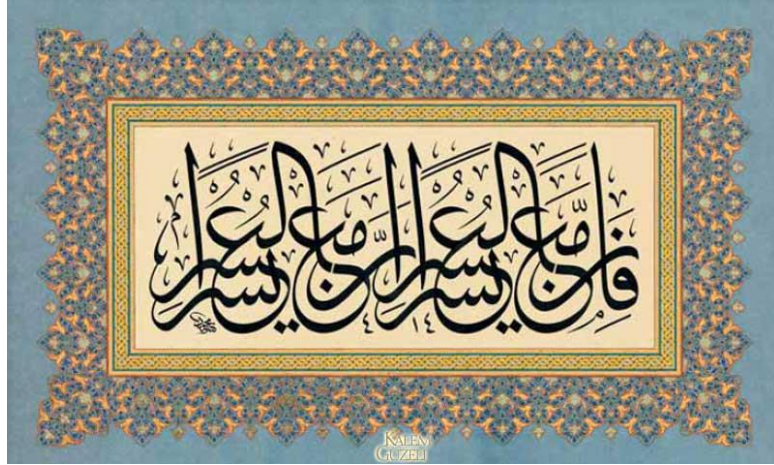 فَإِنَّ مَعَ الْعُسْرِ يُسْرًا إِنَّ مَعَ الْعُسْرِ يُسْرًا
KALEM
GÜZELİ